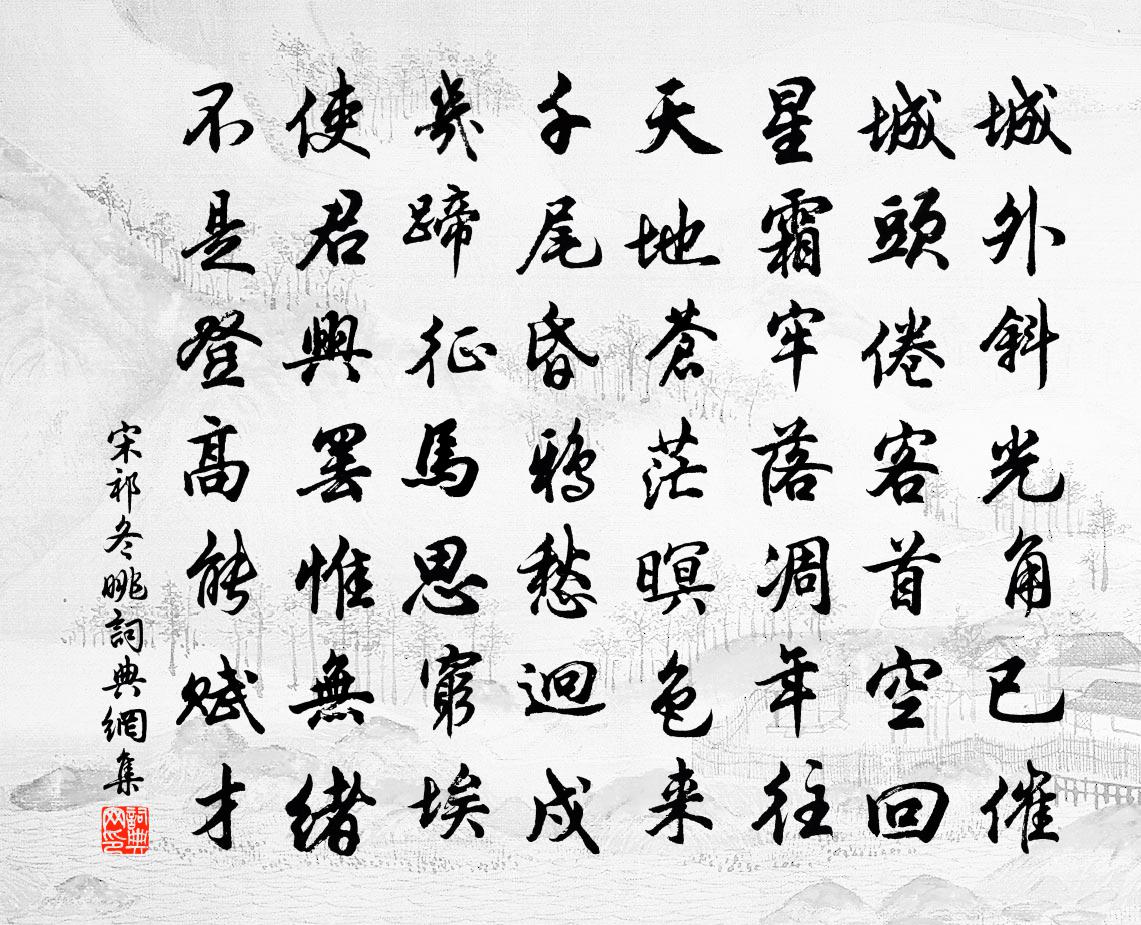 城外斜光角已催
城頭倦客首空回
星霜牢落凋年往
天地蒼茫暝色来
千尾昏鴉愁迥戍
幾蹄征馬思窮埃
使君興罷惟無緒
不是登高能賦才
宋祁冬眺詞典網集
詞典網印